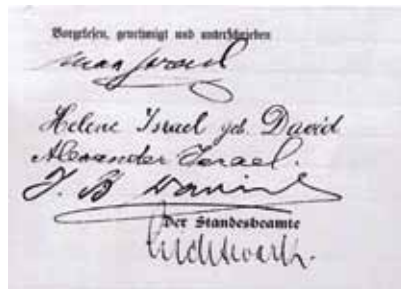 Vorgelesen, genehmigt und unterschrieben
Max Israel
Helene Israel geb. David
Alexander Israel.
J. B David
Der Standesbeamte